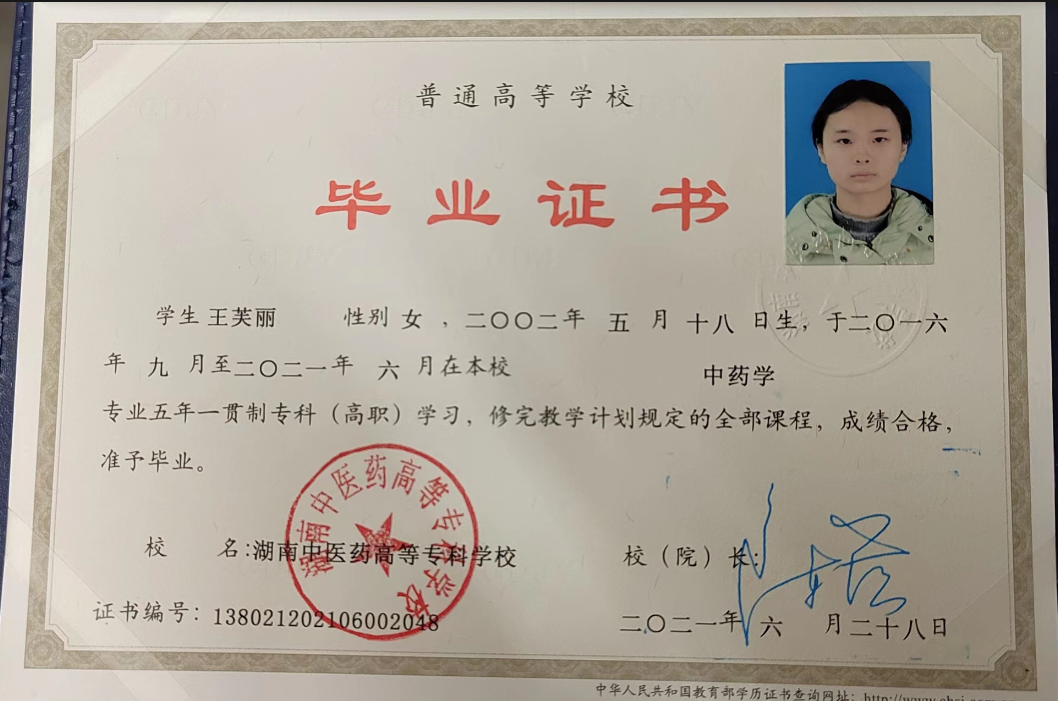 普通高等学校
毕业证书
学生 王芙丽 性别 女 ，二〇〇二年 五 月 十八 日生，于二〇一六
年 九 月至二〇二一年 六 月在本校 中药学
专业五年一贯制专科（高职）学习，修完教学计划规定的全部课程，成绩合格，
准予毕业。
湖南中医药高等专科学校
校 名：湖南中医药高等专科学校 校（院）长：
证书编号：138021202106002048 二〇二一年 六 月二十八日
中华人民共和国教育部学历证书查询网址：http://www.chsi.com.cn